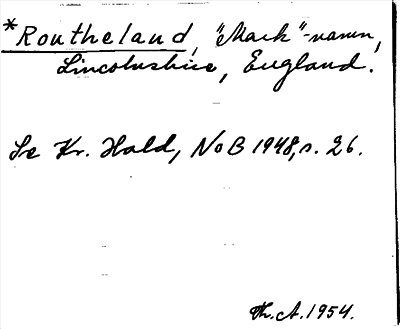 *Routheland, "Mark"-navn,
Lincolnshire, England.
Se Kr. Hald, NoB 1948, s. 26.
Th. A. 1954.